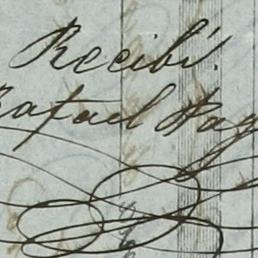 Recibí.
Rafael Pag